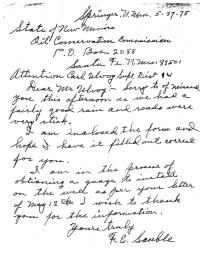 Springer, N. Mex. 5-27-75
State of New Mexico
Oil Conservation Commission
P.O. Box 2088
Santa Fe N. Mex. 87501
Attention Carl Ulvog Supt. Dist #4
Dear Mr Ulvog - Sorry to missed
you this afternoon as we had a
fairly good rain and roads were
very slick.
I am inclosed the form and
hope I have it filled out correct
for you.
I am in the process of
obtaining a guage to install
on the well as per your letter
of may 12th I wish to thank
you for the information.
Yours truly
F.E. Sauble